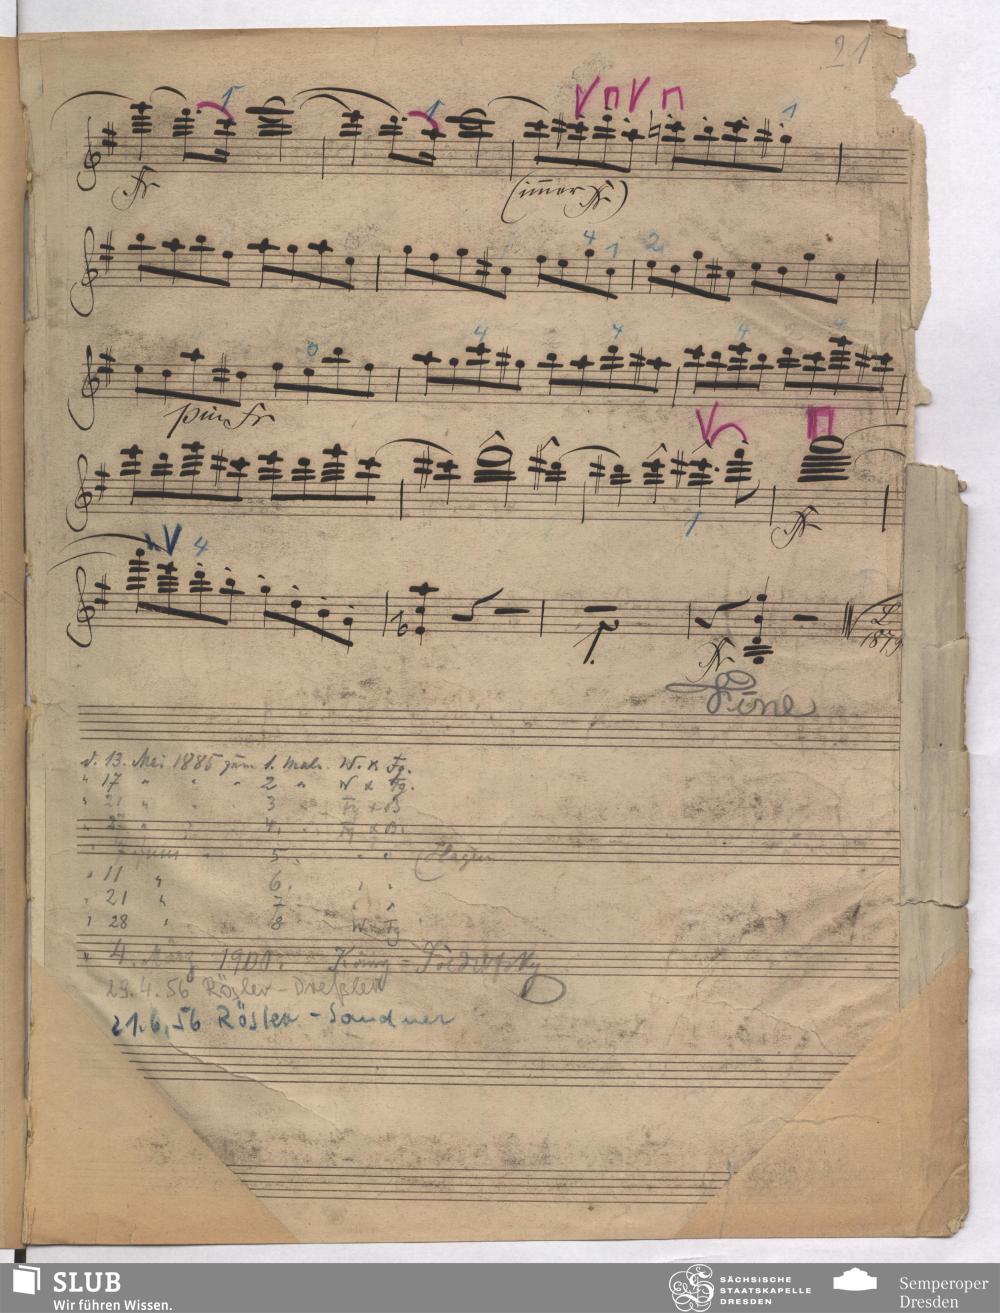 21
1 1 1
ff
(immer ff)
4 1 2
4 4 4 4
0
più ff
1
ff
4
ff
1879
Fine
d. 13. Mai 1885 zum 1. Male. W. & Fg.
" 17 " " " 2 " W & Fg.
" 21 " 3 Fg & B
" " 4. " Fg & B.
" 7 Juni " 5. " "
" 11 " 6. " "
" 21 " 7 " "
" 28 " 8 " W Fg
" 4. März
29.4.56 Rösler - Dreßler
21.6.56 Rösler - Sandner
SLUB
Wir führen Wissen.
SÄCHSISCHE
STAATSKAPELLE
DRESDEN
Semperoper
Dresden